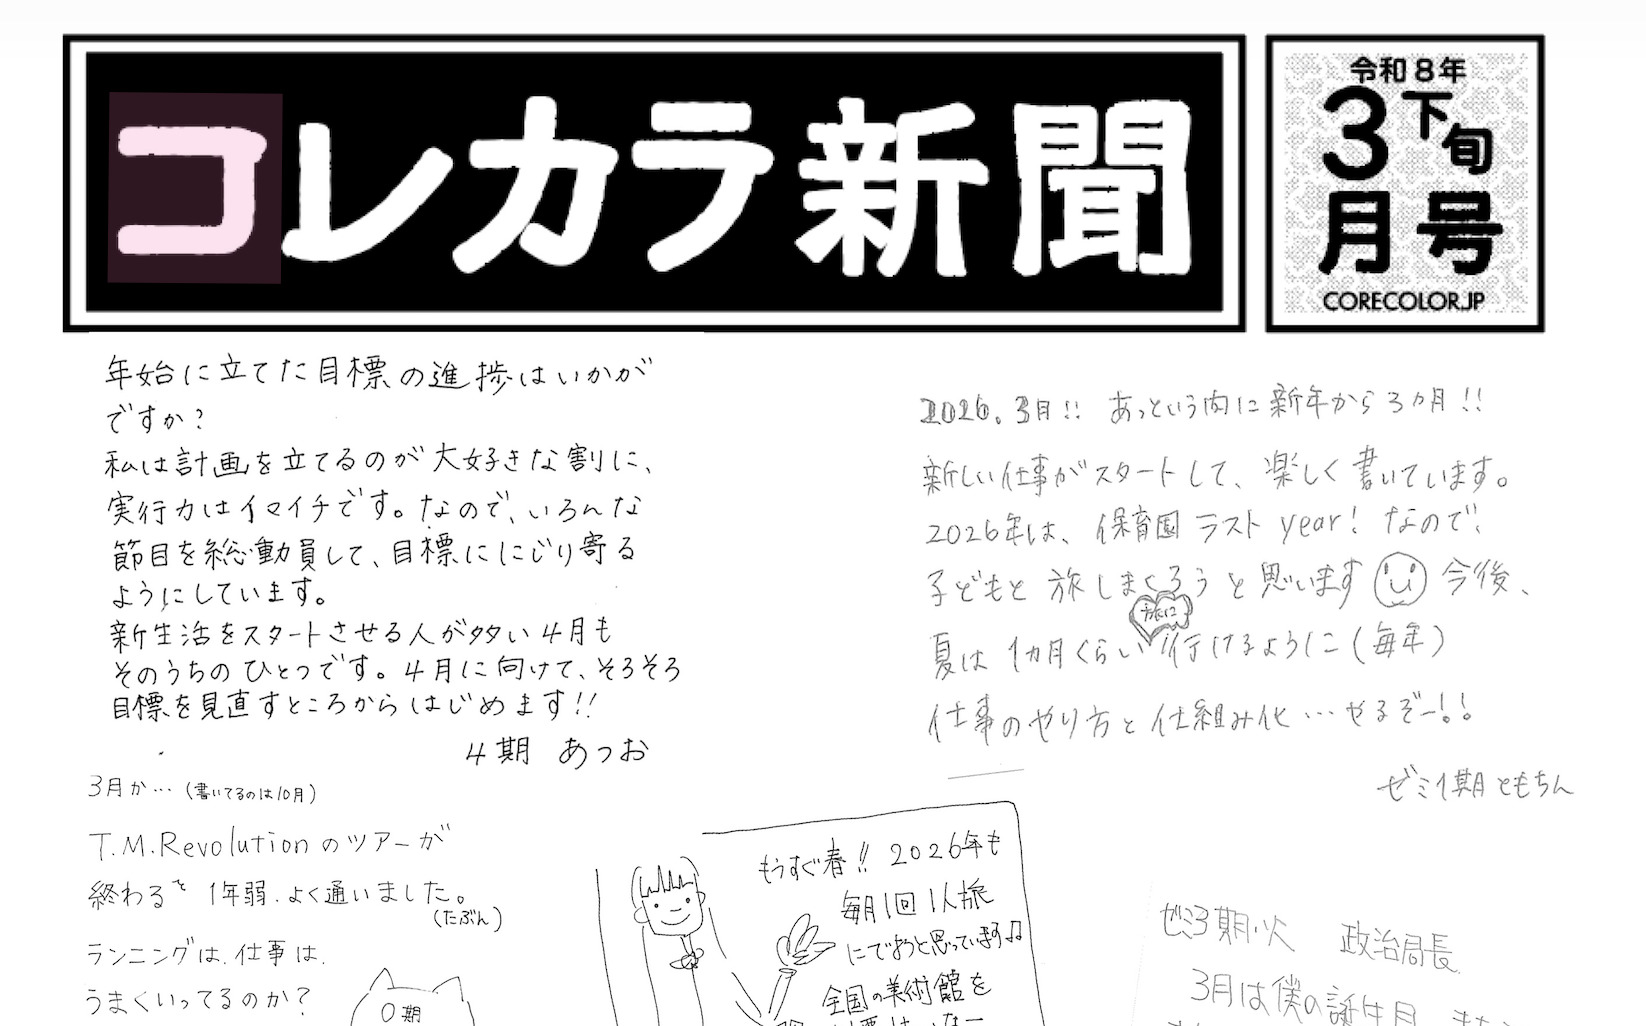 コレカラ新聞
令和8年
3月下旬号
CORECOLOR.JP
年始に立てた目標の進捗はいかが
ですか?
私は計画を立てるのが大好きな割に、
実行力はイマイチです。なので、いろんな
節目を総動員して、目標ににじり寄る
ようにしています。
新生活をスタートさせる人が多い4月も
そのうちのひとつです。4月に向けて、そろそろ
目標を見直すところからはじめます!!
4期 あつお
2026.3月!! あっという間に新年から3ヵ月!!
新しい仕事がスタートして、楽しく書いています。
2026年は、保育園ラストyear! なので、
子どもと旅しまくろうと思います 今後、
夏は1カ月くらい旅に行けるように(毎年)
仕事のやり方と仕組み化…やるぞー!!
ゼミ1期ともちん
3月か…(書いてるのは10月)
T.M.Revolutionのツアーが
終わるで 1年弱.よく通いました。
(たぶん)
ランニングは.仕事は.
うまくいってるのか?
0期
もうすぐ春!! 2026年も
毎月1回1人旅
にでようと思っています♫
全国の美術館を
ゼミ3期・火 政治局長
3月は僕の誕生月